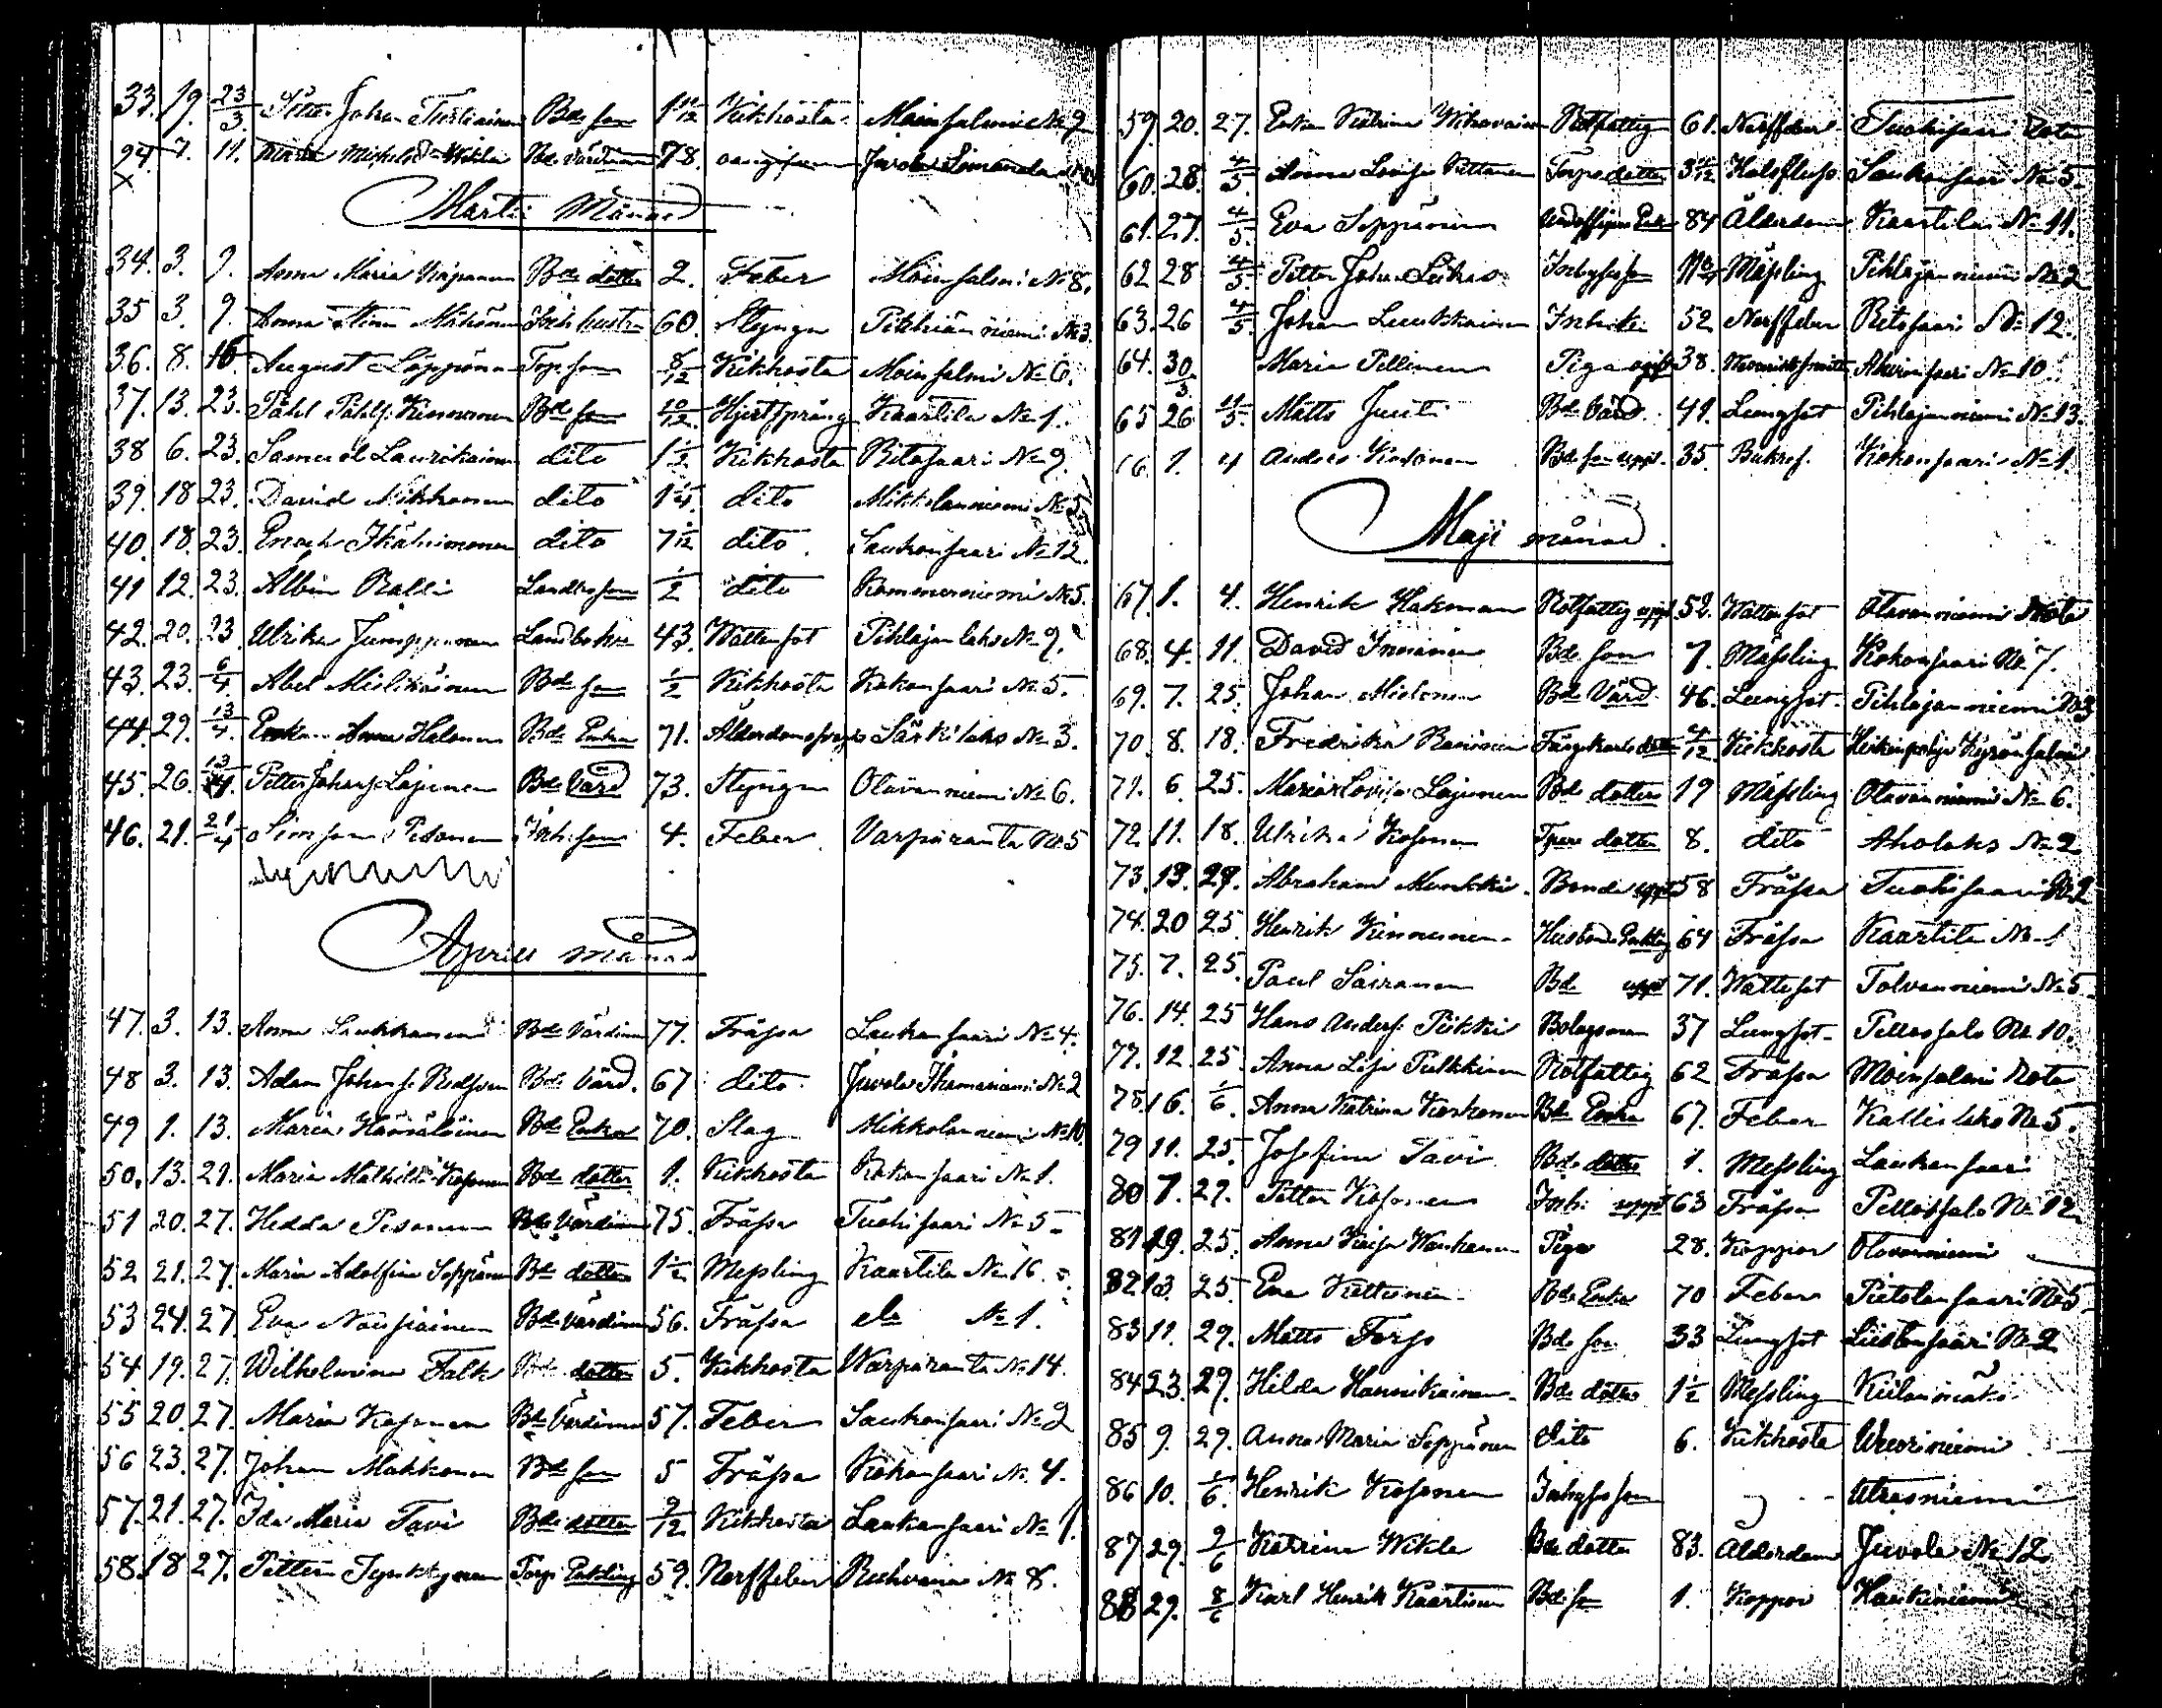 33. 19. 23/3 Petter Johan Turtiainen Bde son 1 11/12 Kikhosta Moinsalmi No 9
24 7. 11. Maria Michelsd. Wikla Bde Värdinna 78. Juvola
Martii Månad
34. 3. 9. Anna Maria Bde dotter 2. Feber Moinsalmi No 8.
35 3. 9. Anna Stina Inh. hustru 60. Styngn Pihlajanniemi No 3.
36. 8. 16. August Löppönen Torp. son 8/12 Kikhosta Moinsalmi No 6.
37. 13. 23. Påhl Påhlss. Kinnunen Bde son 10/12 Hjertsprång Kaartila No 1.
38 6. 23. Samuel Laurikainen dito 1 1/2 Kikhosta Ritosaari No 9.
39. 18 23. David Mikkonen dito 1 1/4 dito Mikkolanniemi No 5
40. 18. 23. Enoch Ikäheimonen dito 7/12 dito Saukonsaari No 12.
41 12. 23. Albin Ralli Landbo son 1/2 dito Kommerniemi No 5.
42. 20. 23 Ulrika Jumppanen Landbo hu 43. Wattensot Pihlajanlaks No 9.
43. 23. 6/4 Abel Bde son 1/2 Kikhosta Kokonsaari No 5.
44. 29. 13/4. Enkan Anna Halonen Bde Enka 71. Särkilaks No 3.
45. 26. 13/4. Petter Johanss. Lajunen Bde Värd 73. Styngn Olavanniemi No 6.
46. 21. 21/4 Simson Pesonen Inh. son 4. Feber Varparanta No 5
Aprill månad
47. 3. 13. Anna Laukkanen Bde Värdinna 77. Fråssa Laukansaari No 4.
48 3. 13. Adam Johanss. Bde Värd. 67 dito Juvola No 2
49 1. 13. Maria Hämäläinen Bde Enka 70. Slag Mikkolanniemi No 10.
50. 13. 21. Maria Mathilda Kosonen Bde dotter 1. Kikhosta Kokonsaari No 1.
51 20. 27. Hedda Pesonen Bde Värdinna 75. Fråssa Tuohisaari No 5
52 21. 27. Maria Adolfina Seppänen Bde dotter 1 1/2 Messling Kaartila No 16.
53 24. 27. Eva Nousiainen Bde Värdinna 56. Fråssa No 1.
54 19. 27. Wilhelmina Falk Bde dotter 5. Kikhosta Warparanta No 14.
55 20. 27. Maria Kosonen Bde Värdinna 57. Feber Saukonsaari No 2
56 23. 27. Johan Makkonen Bde son 5 Fråssa Kokonsaari No 4.
57. 21. 27. Ida Maria Tavi Bde dotter 9/12 Kikhosta Laukansaari No 1.
58. 18 27. Petter Tynkkynen Torp. Enkling 59. Nerffeber Ruhvana No 8.
59. 20. 27. Enkan Katrina Rotfattig 61. Nerffeber Tuohisaari Rote
60. 28. 4/5. Anna Lovisa Puttonen Torpe dotter 3 4/12 Halsfluss Saukonsaari No 5.
61. 27. 4/5. Eva Seppänen 84 Ålderdom Kaartila No 11.
62 28 4/5. Petter Johan Inhysesson Mässling Pihlajanniemi No 2
63. 26 4/5. Johan Luukkainen Inher 52 Nerffeber Ritosaari No 12.
64. 30/3 Maria Pellinen Piga ogift 38. Ahvionsaari No 10
65 26 11/5. Matts Juuti Bde Värd. 41. Lungsot Pihlajanniemi No 13.
66. 1. 4 Anders Kosonen Bde son 35. Kokonsaari No 1
Maji månad.
67. 1. 4. Henrik Hakeman Rotfattig 52. Wattensot Olavanniemi Rote
68. 4. 11. David Inoinen Bde son 7. Mässling Kokonsaari No 7.
69. 7. 25. Johan Mielonen Bde Värd 46. Lungsot Pihlajanniemi No 3
70. 8. 18. Fredrika dotter 4/12 Kikhosta Heikinpohja Kyrönsalmi
71. 6 25. Maria Lovisa Lajunen Bde dotter 19 Mässling Olavanniemi No 6.
72. 11. 18. Ulrika Kosonen Tpare dotter 8. dito Aholaks No 2
73. 13. 27. Abraham Munkki Bonde 58 Fråssa Tuohisaari No 2
74. 20 25. Henrik Kinnunen Enkling 64 Fråssa Kaartila No 1
75. 7. 25. Paul Sairanen Bde 71. Wattusot Tolvanniemi No 5
76. 14. 25 Hans Anderss. Piikki Bolagsman 37 Lungsot Pellossalo No 10.
77. 12. 25. Anna Lisa Pulkkinen Rotfattig 62 Fråssa Moinsalmi Rote
78. 16. 1/6. Anna Katrina Koskonen Bde Enka 67. Feber Kallislaks No 5.
79 11. 25. Josefina Tavi Bde dotter 1. Messling Laukansaari
80 7. 27. Petter Kosonen Inh. 63 Fråssa Pellossalo No 12.
81 19. 25. Anna Kaisa Piga 28. Koppor Olavanniemi
82 13. 25. Eva Kettunen Bde Enka 70 Feber Pietolansaari No 5
83 11. 29. Matts Bde son 33 Lungsot Liistonsaari No 2
84 23. 29. Hilda Hannikainen Bde dotter 1 1/2 Messling
85 9. 29. Anna Maria Seppänen dito 6. Kikhosta Wuoriniemi
86 10. 1/6. Henrik Kosonen Inhyses son Utrasniemi
87 29. 2/6 Katrina Wikla Bde dotter 83. Ålderdom Juvola No 12
88 29. 8/6 Karl Henrik Kaartinen Bde son 1. Koppor Haukiniemi